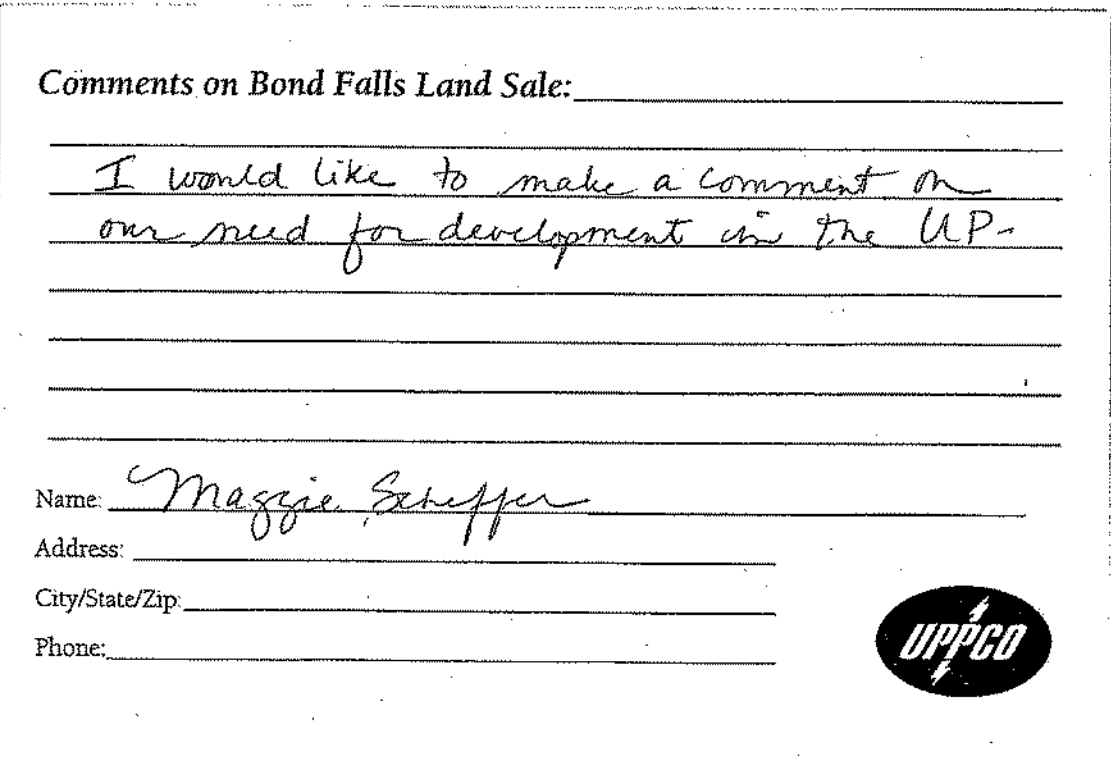 Comments on Bond Falls Land Sale:
I would like to make a comment on
our need for development in the UP-
Name: Maggie Scheffer
Address:
City/State/Zip:
Phone:
UPPCO